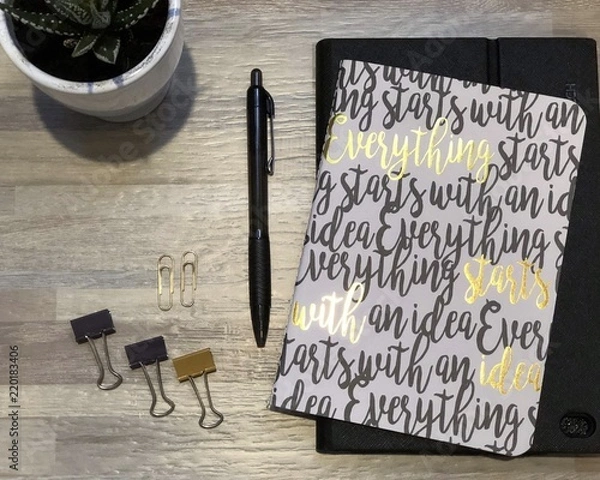 starts with an
ing starts with an
Everything starts
g starts with an id
idea Everything s
verything starts
with an idea Ever
tarts with an idea
Everything
Adobe Stock | #220183406